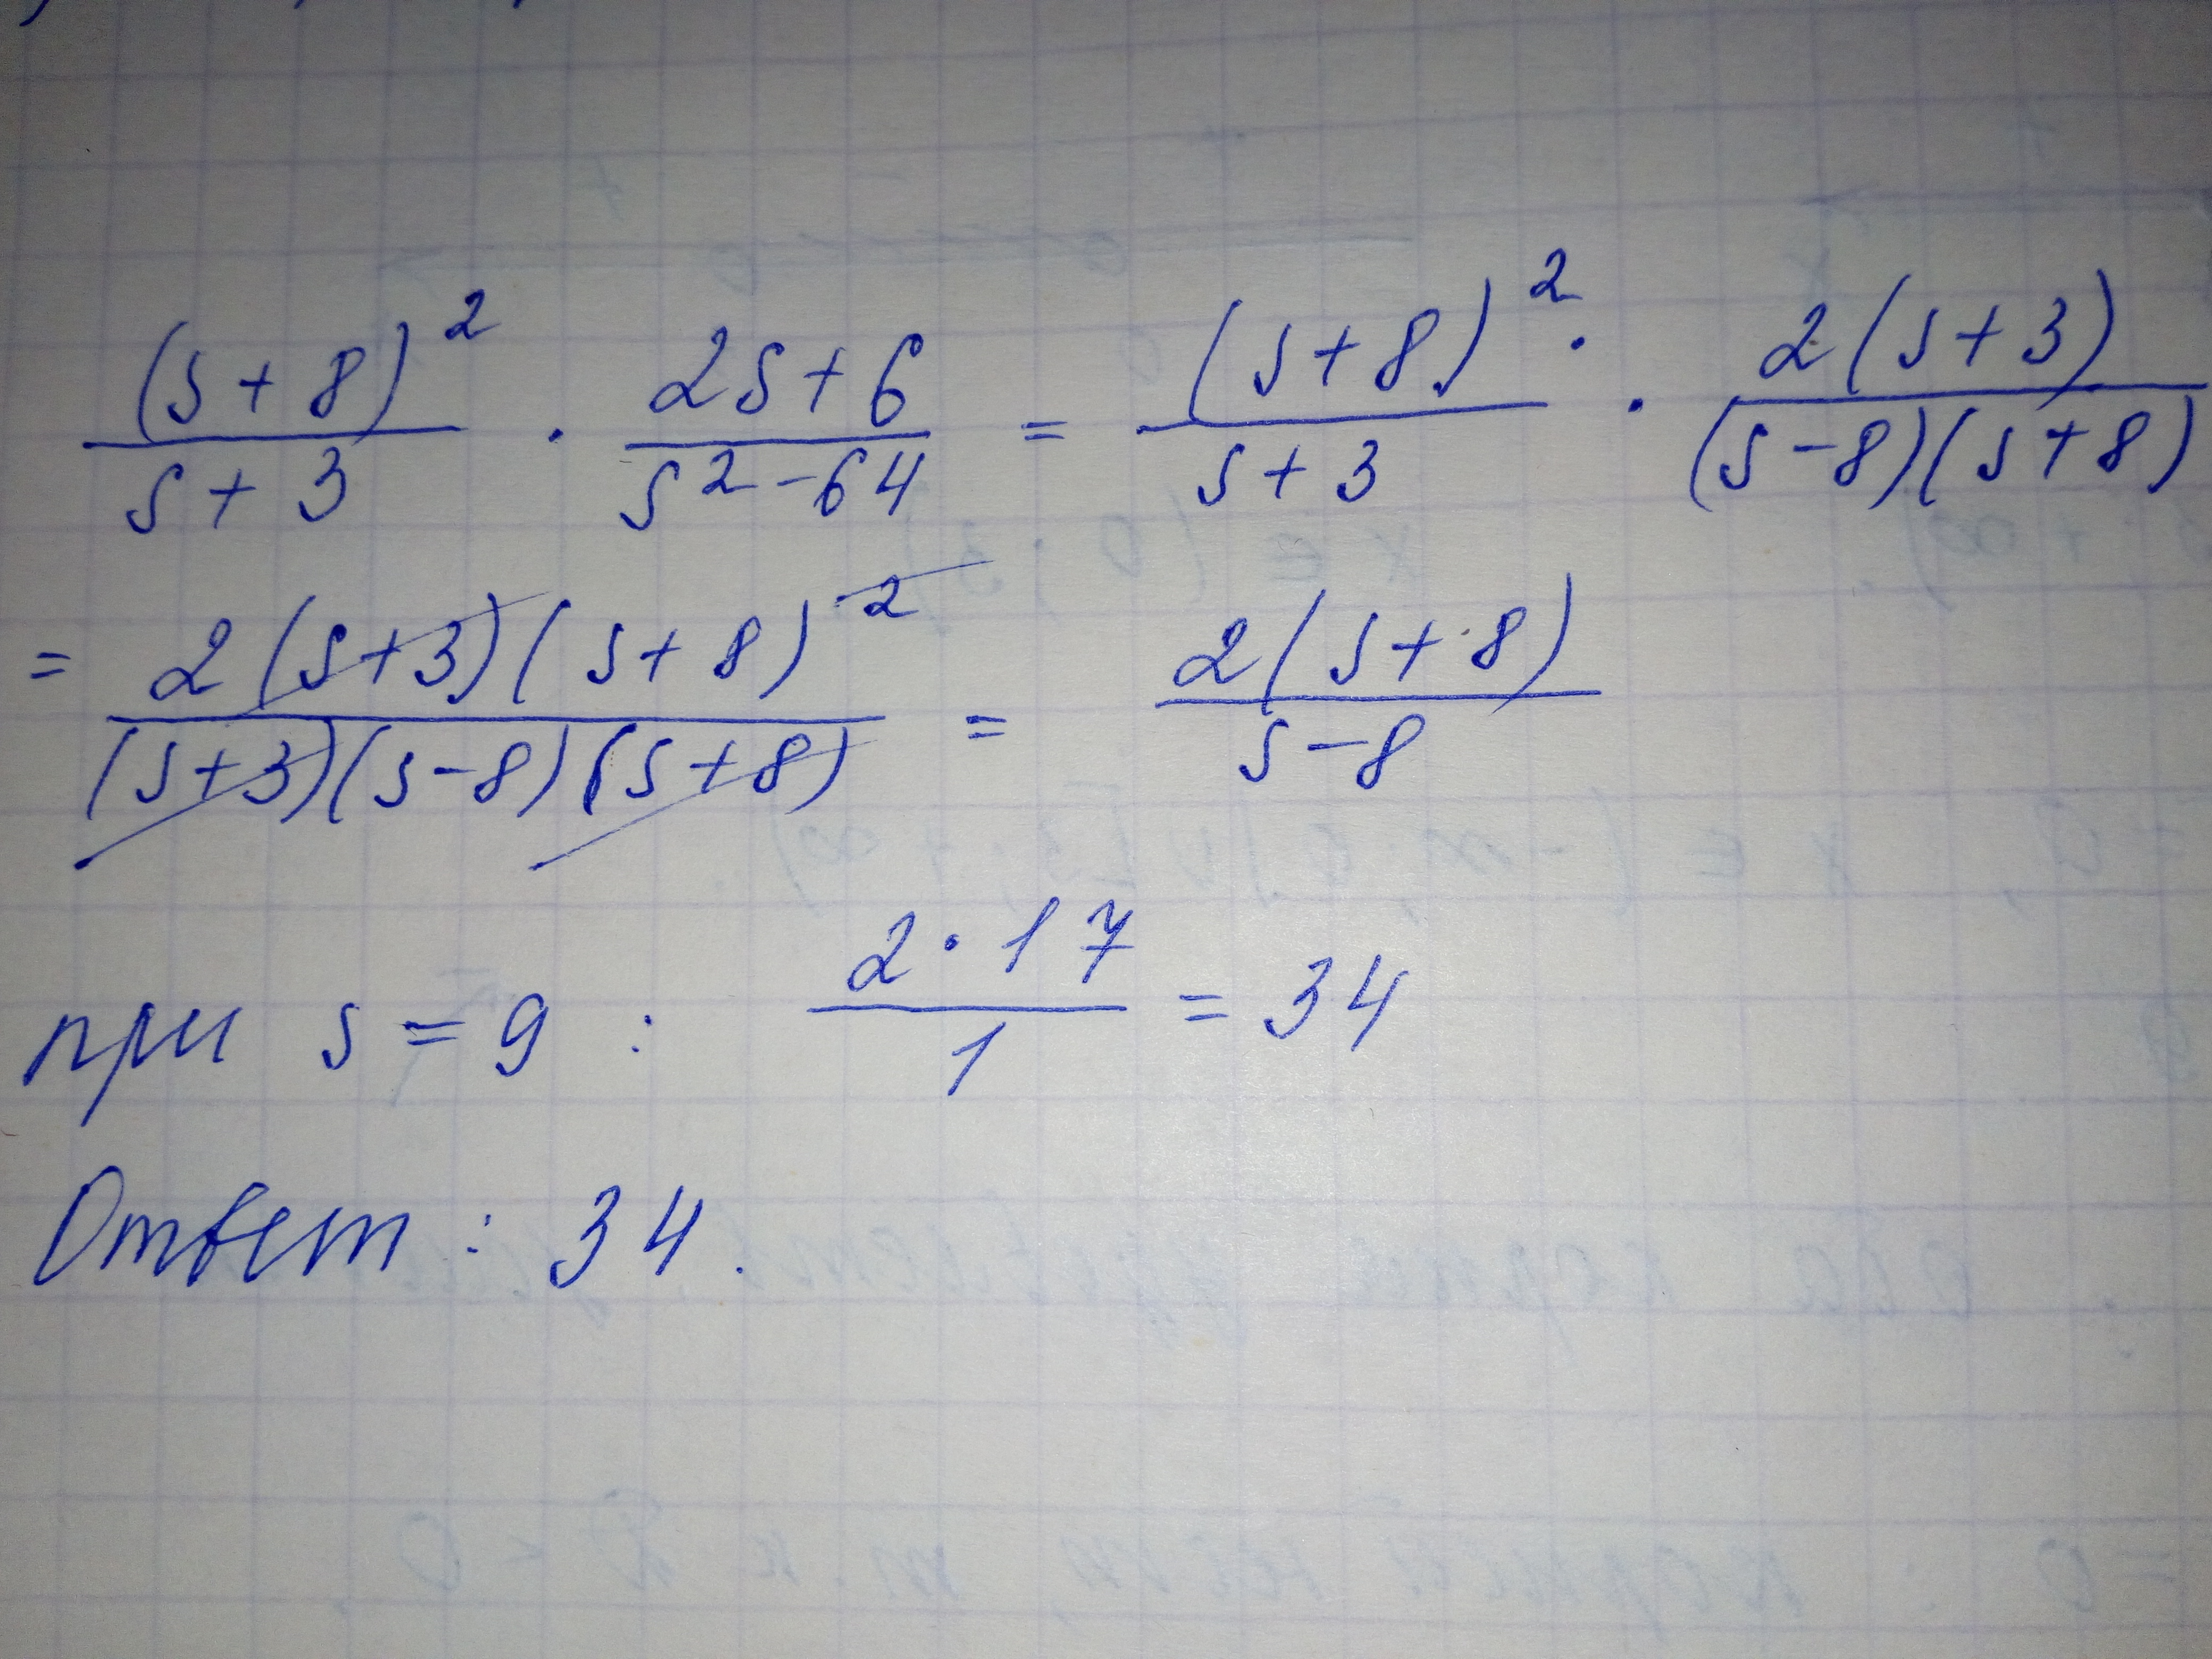 (s+8)²/(s+3) · (2s+6)/(s²-64) = (s+8)²/(s+3) · 2(s+3)/((s-8)(s+8))
= 2(s+3)(s+8)²/((s+3)(s-8)(s+8)) = 2(s+8)/(s-8)
при s = 9 : 2·17/1 = 34
Ответ : 34.